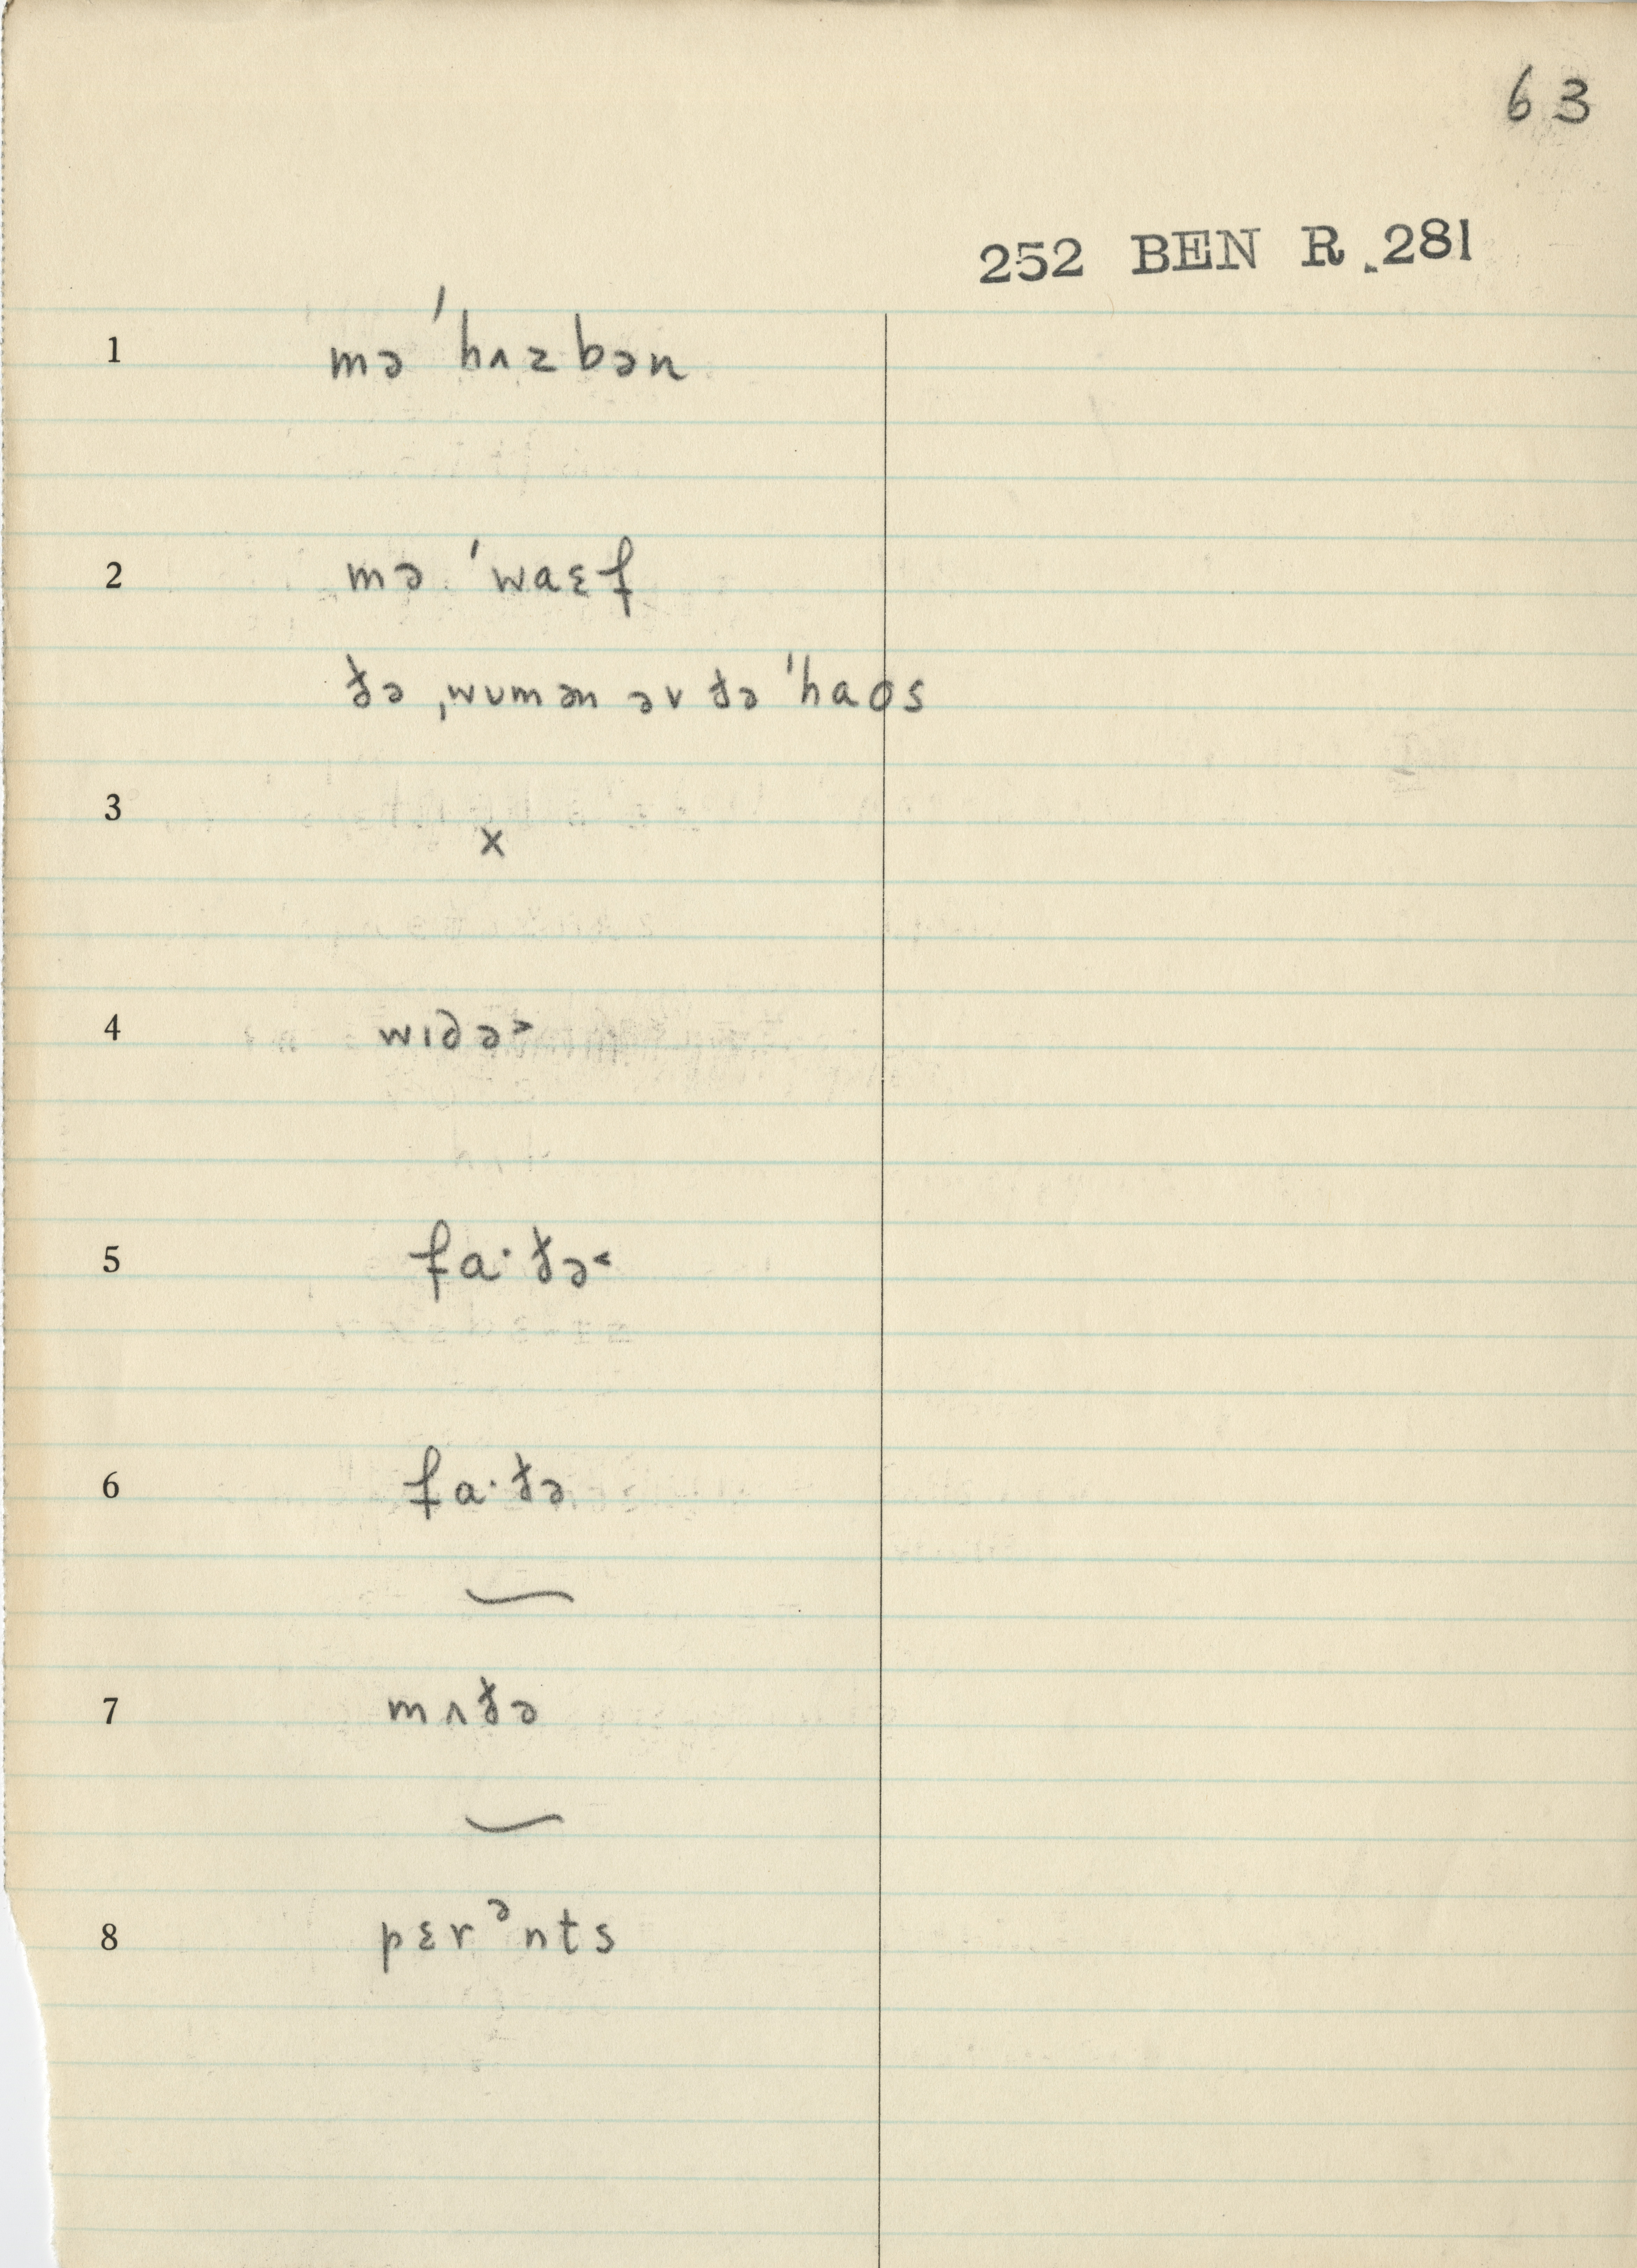 63
252 BEN R. 281
1 mə ˈhʌzbən
2 mə ˈwaɛf
ðə ˌwʊmən əv ðə ˈhaos
3 x
4 wɪdə˃
5 faˑðə˂
6 faˑðə
7 mʌðə
8 pɛrᵊnts